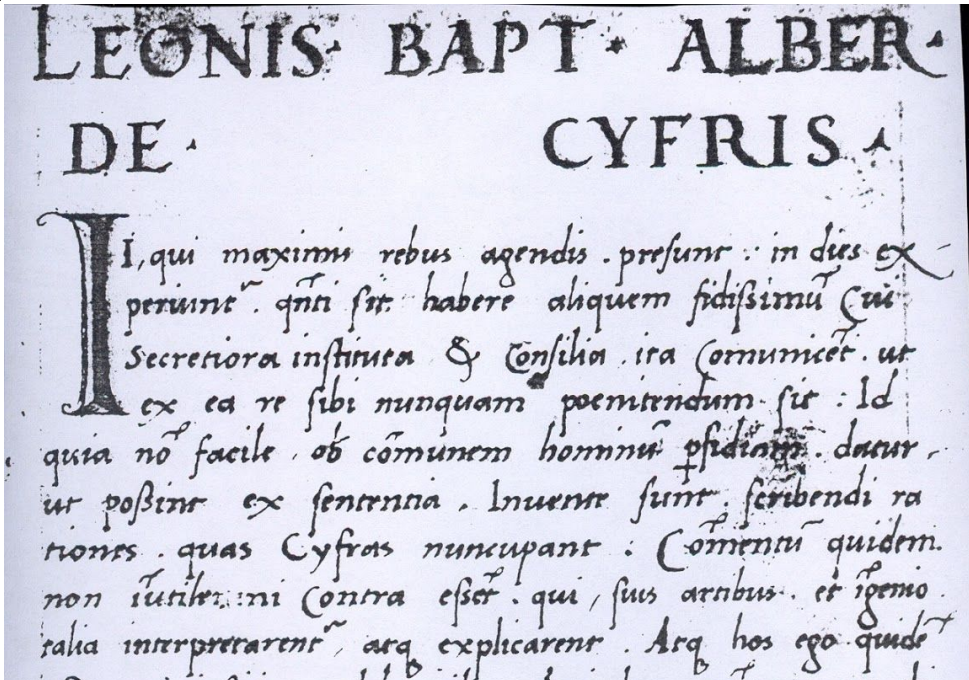 LEONIS· BAPT· ALBER·
DE· CYFRIS·
II, qui maximis rebus agendis . presunt : in dies ex-
periunt᷑. qn̄ti sit habere aliquem fidissimū Cui
Secretiora instituta & Consilia . ita Comunicēt . ut
ex ea re sibi nunquam poenitendum sit : Id
quia nō facile . ob cōmunem hominū ꝑfidiam . datur,
ut poßint ex sententia . Invente sunt . scribendi ra
tiones . quas Cyfras nuncupant : Cōmentū quidem.
non īutile: ni Contra eßēt . qui, suis artibus . et īgenio
talia interpretarent᷑, atq explicarent . Atq hos ego quidē